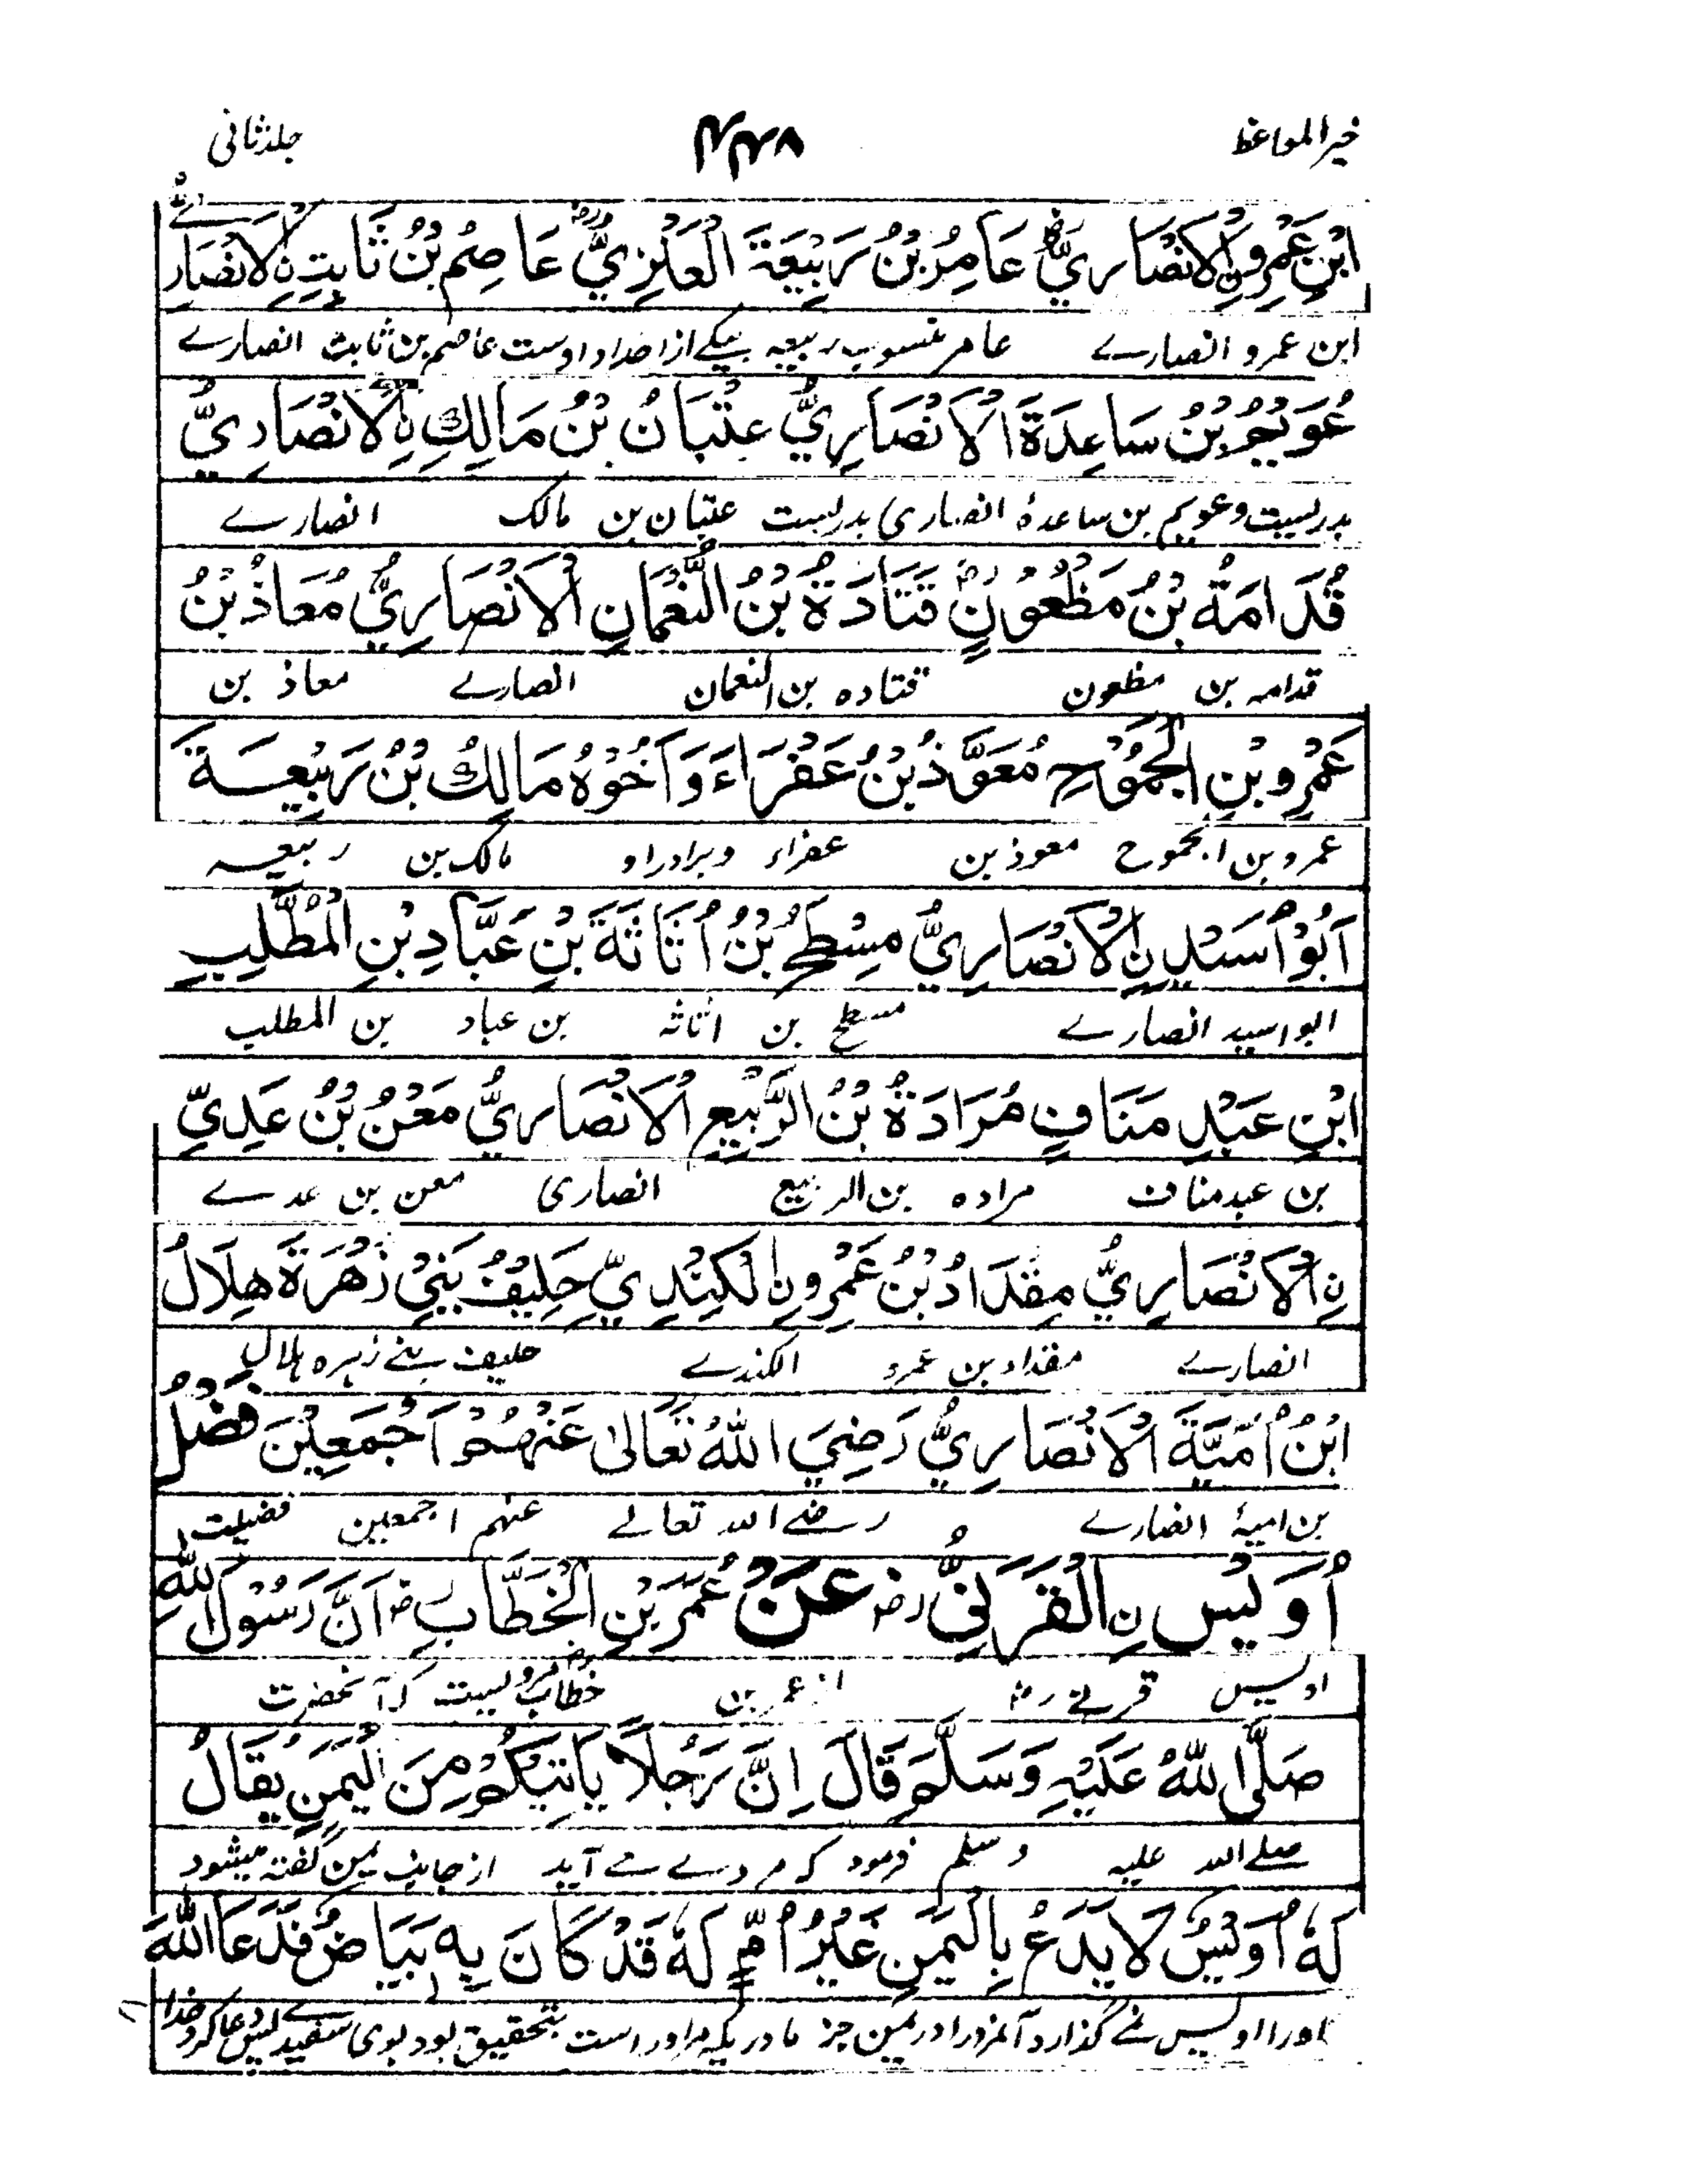 خیر المواعظ ۴۴۷ جلد ثانی
ابْنِ عَمْرِوِنِ الْاَنْصَارِيُّ عَامِرُ بْنُ رَبِيْعَةَ الْعَنَزِيُّ عَاصِمُ بْنُ ثَابِتِ نِ الْاَنْصَارِيُّ
ابن عمرو انصارے عامر منسوب ربیعہ یکے از اجداد اوست عاصم بن ثابت انصارے
عُوَيْمُ بْنُ سَاعِدَةَ الْاَنْصَارِيُّ عِتْبَانُ بْنُ مَالِكِ نِ الْاَنْصَارِيُّ
بدریست وعویم بن ساعدۂ انصاری بدریست عتبان بن مالک انصارے
قُدَامَةُ بْنُ مَظْعُوْنٍ قَتَادَةُ بْنُ النُّعْمَانِ الْاَنْصَارِيُّ مُعَاذُ بْنُ
قدامہ بن مظعون قتادہ بن النعمان انصارے معاذ بن
عَمْرِو بْنِ الْجَمُوْحِ مُعَوَّذُ بْنُ عَفْرَاءَ وَاَخُوْهُ مَالِكُ بْنُ رَبِيْعَةَ
عمرو بن الجموح معوذ بن عفراء وبرادر او مالک بن ربیعہ
اَبُوْ اُسَيْدِ نِ الْاَنْصَارِيُّ مِسْطَحُ بْنُ اُثَاثَةَ بْنِ عَبَّادِ بْنِ الْمُطَّلِبِ
ابو اسید انصارے مسطح بن اثاثہ بن عباد بن المطلب
ابْنِ عَبْدِ مَنَافٍ مُرَادَةُ بْنُ الرَّبِيْعِ الْاَنْصَارِيُّ مَعْنُ بْنُ عَدِيِّ
بن عبد مناف مرادہ بن الربیع انصاری معن بن عدے
نِ الْاَنْصَارِيُّ مِقْدَادُ بْنُ عَمْرِو نِ الْكِنْدِيِّ حَلِيْفُ بَنِيْ زُهْرَةَ هِلَالُ
انصارے مقداد بن عمرو الکندے حلیف بنے زہرہ ہلال
ابْنُ اُمَيَّةَ الْاَنْصَارِيُّ رَضِيَ اللهُ تَعَالٰى عَنْهُمْ اَجْمَعِيْنَ فَضْلُ
بن امیۂ انصارے رضے اللہ تعالے عنہم اجمعین فضیلت
اُوَيْسِ نِ الْقَرَنِيِّ رض عَنْ عُمَرَ بْنِ الْخَطَّابِ رض اَنَّ رَسُوْلَ اللهِ
اویس قرنے رض از عمر بن خطاب مرویست کہ آنحضرت
صَلَّى اللهُ عَلَيْهِ وَسَلَّمَ قَالَ اِنَّ رَجُلًا يَاْتِيْكُمْ مِنَ الْيَمَنِ يُقَالُ
صلے اللہ علیہ وسلم فرمود کہ مردے مے آید از جانب یمن گفتہ میشود
لَهٗ اُوَيْسٌ لَا يَدَعُ بِالْيَمَنِ غَيْرَ اُمٍّ لَهٗ قَدْ كَانَ بِهٖ بَيَاضٌ فَدَعَا اللهَ
اورا اویس نمے گذارد آنمرد را در یمن جز مادریکہ مر او راست بتحقیق بود بوی سفیدے پس دعا کرد خدا را